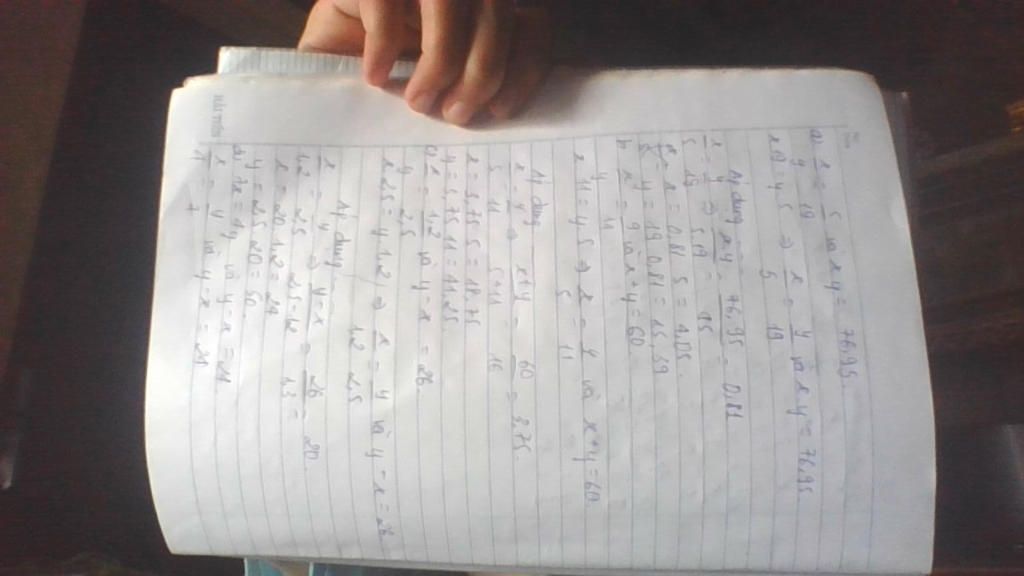 a, x/y = 5/19 và x y = 76,95.
x 19 = y 5 ⇒ x/5 = y/19 và x y = 76,95
Áp dụng
x/5 = y/19 ⇒ x y/5.19 = 76,95/95 = 0,81
x = 0,81 5 = 4,05.
y = 19 0,81 = 15,39
x/y = và x + y = 60
x 11 = y 5 ⇒ x/5 = y/11 và x + y = 60.
Áp dụng
x/5 = y/11 ⇒ x+y/5+11 = 60/16 = 3,75.
x = 3,75 5 = 18,75
y = 3,75 11 = 41,25.
c, x/y = 1,2/2,5 và y - x = 26
x 2,5 = y 1,2 ⇒ x/1,2 = y/2,5 và y - x = 26
Áp dụng
x/1,2 = y/2,5 ⇒ y-x/2,5-1,2 = 26/1,3 = 20.
x = 20 1,2 = 24
y = 2,5 20 = 50.
d, 7x = 4y và y - x = 24.
x/4 = y/7 và y - x = 24
HẢI TIẾN